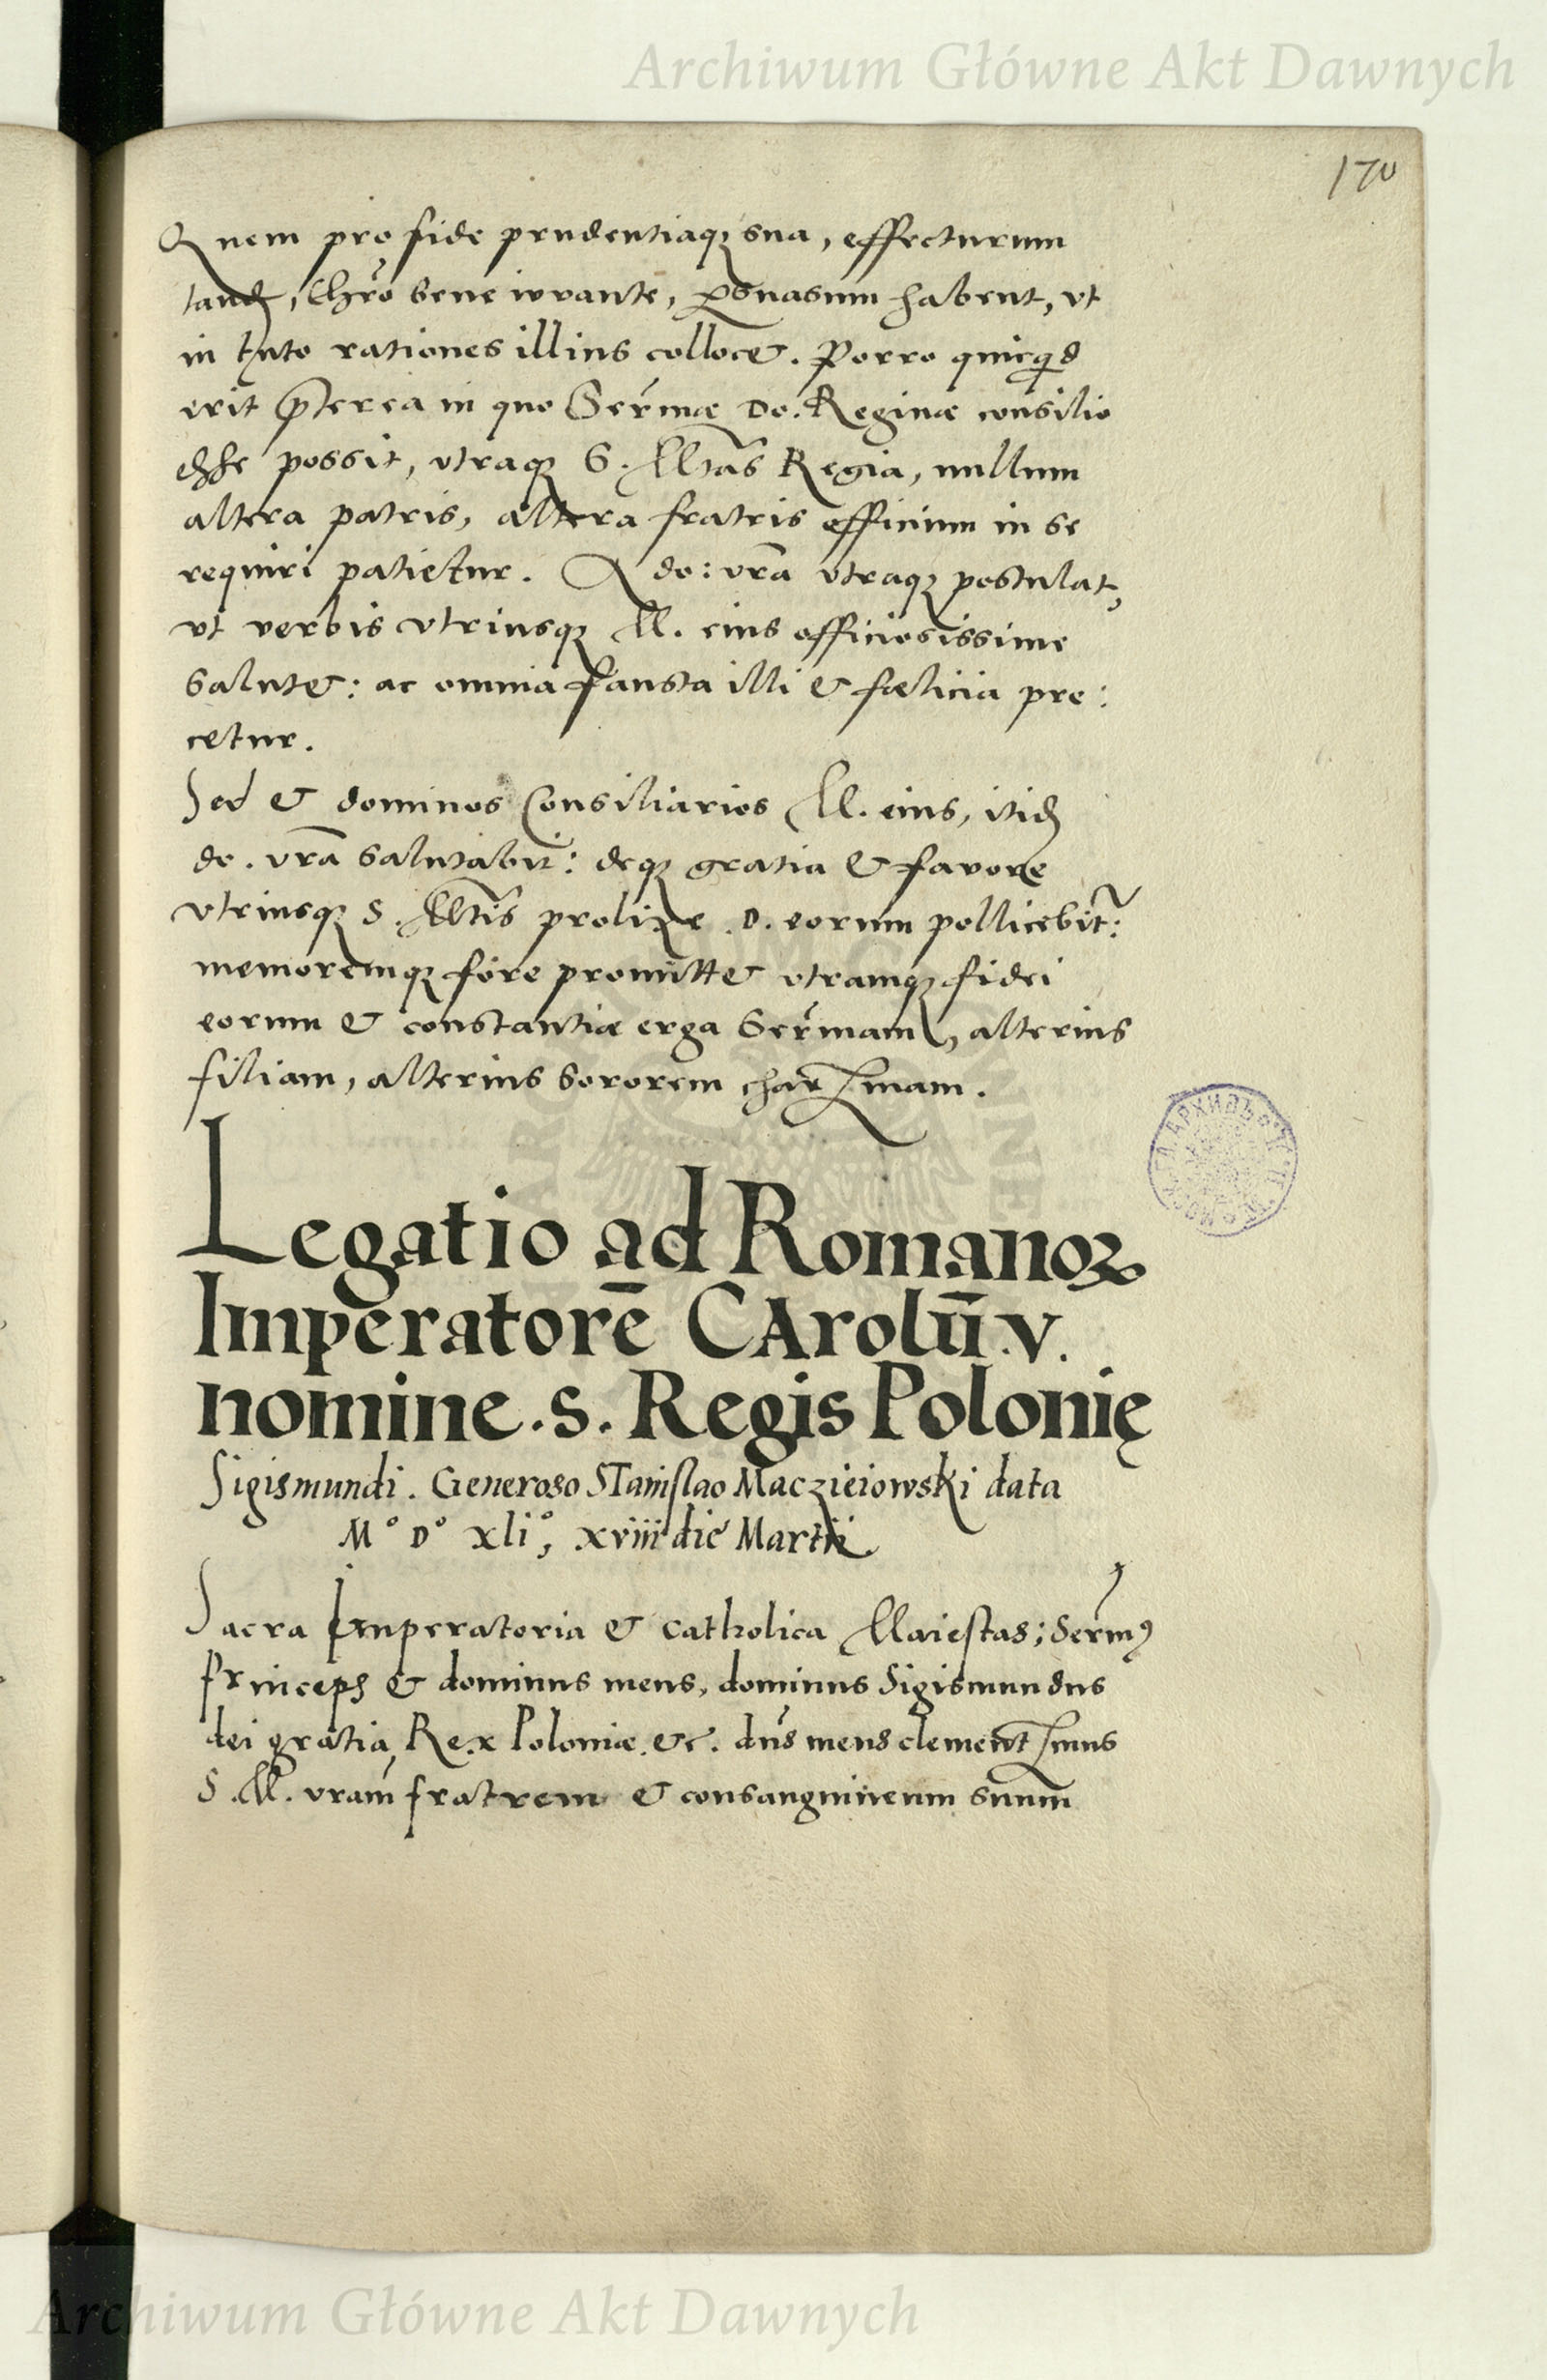 Archiwum Główne Akt Dawnych
170
Quem pro fide prudentiaqꝫ sua, effecturum
tandē, Chr̃o bene iuvante, ꝑsuasum habent, vt
in tuto rationes illius collocet. Porro quicqͥd
erit p̃terea in quo Ser̃mæ Do. Reginæ consilio
esse possit, vtraqꝫ S. M̃tas Regia, nullum
altera patris, altera fratris officium in se
requiri patietur. A do: vr̃a vtraqꝫ postulat,
vt verbis vtriusqꝫ M. eius officiosissime
salutet: ac omnia fausta illi & fœlicia pre:
cetur.
Sed & dominos Consiliarios M. eius, itidē
do. vr̃a salutabit: deqꝫ gratia & favore
vtriusqꝫ S. M̃tis prolixe .D. eorum pollicebit̃:
memoremqꝫ fore promittet vtramqꝫ fidei
eorum & constantiæ erga Ser̃mam, alterius
filiam, alterius sororem char̃mam.
Legatio ad Romanoꝝ
Imperatorē CArolū .v.
nomine .s. Regis Polonię
Sigismundi. Generoso STanislao Maczieiowski data
M° D° xli°, xviii die Martii
Sacra Imperatoria & catholica Maiestas; Ser̃mꝰ
princeps & dominus meus, dominus Sigismundus
dei gratia Rex Poloniæ &c. dn̄s meus clement̃mus
S. M. vram̃ fratrem & consanguineum suum
Archiwum Główne Akt Dawnych